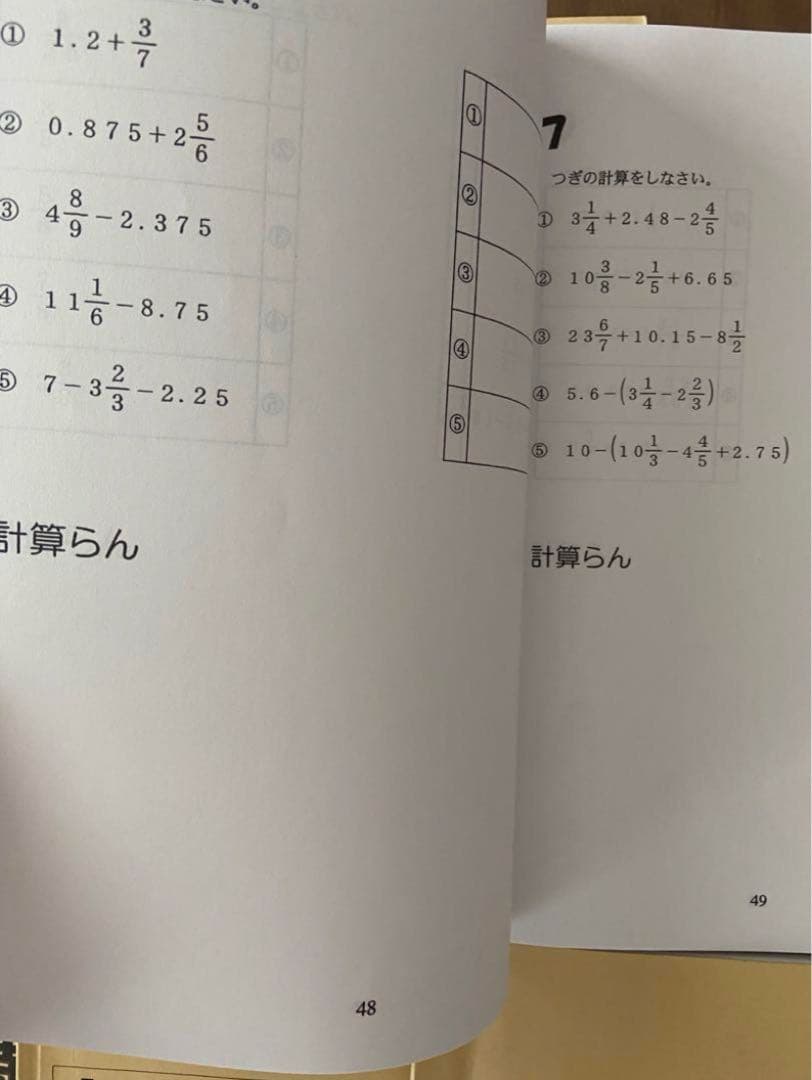 さい。
① 1.2+3/7
② 0.875+2 5/6
③ 4 8/9−2.375
④ 11 1/6−8.75
⑤ 7−3 2/3−2.25
①
②
③
④
⑤
計算らん
48
7
つぎの計算をしなさい。
① 3 1/4+2.48−2 4/5
② 10 3/8−2 1/5+6.65
③ 23 6/7+10.15−8 1/2
④ 5.6−(3 1/4−2 2/3)
⑤ 10−(10 1/3−4 4/5+2.75)
計算らん
49